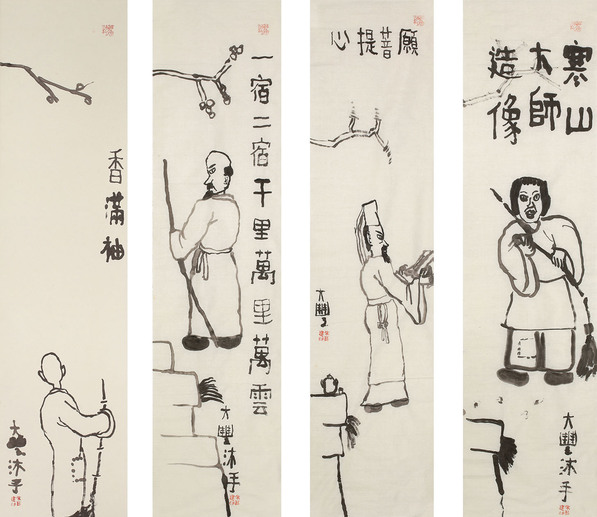 香滿袖
大豐沐手
一宿二宿千里萬里萬雲
大豐沐手
願菩提心
大豐
寒山
大師
造像
大豐沐手